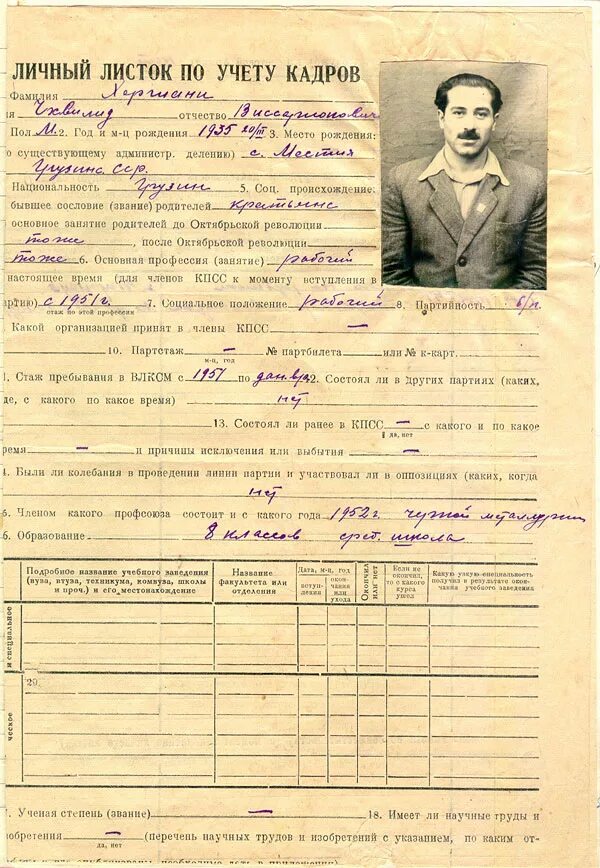 ЛИЧНЫЙ ЛИСТОК ПО УЧЕТУ КАДРОВ
Фамилия Хергиани
Чхвилид отчество Виссарионович
Пол М. 2. Год и м-ц рождения 1935 20/III 3. Место рождения:
о существующему администр. делению) с. Местия
Грузинс. сср.
Национальность Грузин 5. Соц. происхождение:
бывшее сословие (звание) родителей крестьянс
основное занятие родителей до Октябрьской революции
тоже , после Октябрьской революции
тоже 6. Основная профессия (занятие) рабочий
настоящее время (для членов КПСС к моменту вступления в
артию) с 1951 г. 7. Социальное положение рабочий 8. Партийность б/п.
стаж по этой профессии
Какой организацией принят в члены КПСС —
10. Партстаж — № партбилета или № к-карт.
м-ц, год
1. Стаж пребывания в ВЛКСМ с 1951 по 2. Состоял ли в других партиях (каких,
де, с какого по какое время) нет
13. Состоял ли ранее в КПСС — с какого и по какое
да, нет
ремя — и причины исключения или выбытия —
4. Были ли колебания в проведении линии партии и участвовал ли в оппозициях (каких, когда
нет
5. Членом какого профсоюза состоит и с какого года 1952 г. черной металлургии
6. Образование 8 классов сред. школа
Подробное название учебного заведения (вуза, втуза, техникума, комвуза, школы и проч.) и его местонахождение
Название факультета или отделения
Дата, м-ц, год
вступления
окончания или ухода
Окончил или нет
Если не окончил, то с какого курса ушел
Какую узкую специальность получил в результате окончания учебного заведения
и специальное
29.
ческое
7. Ученая степень (звание) — 18. Имеет ли научные труды и
зобретения — (перечень научных трудов и изобретений с указанием, по каким от-
да, нет